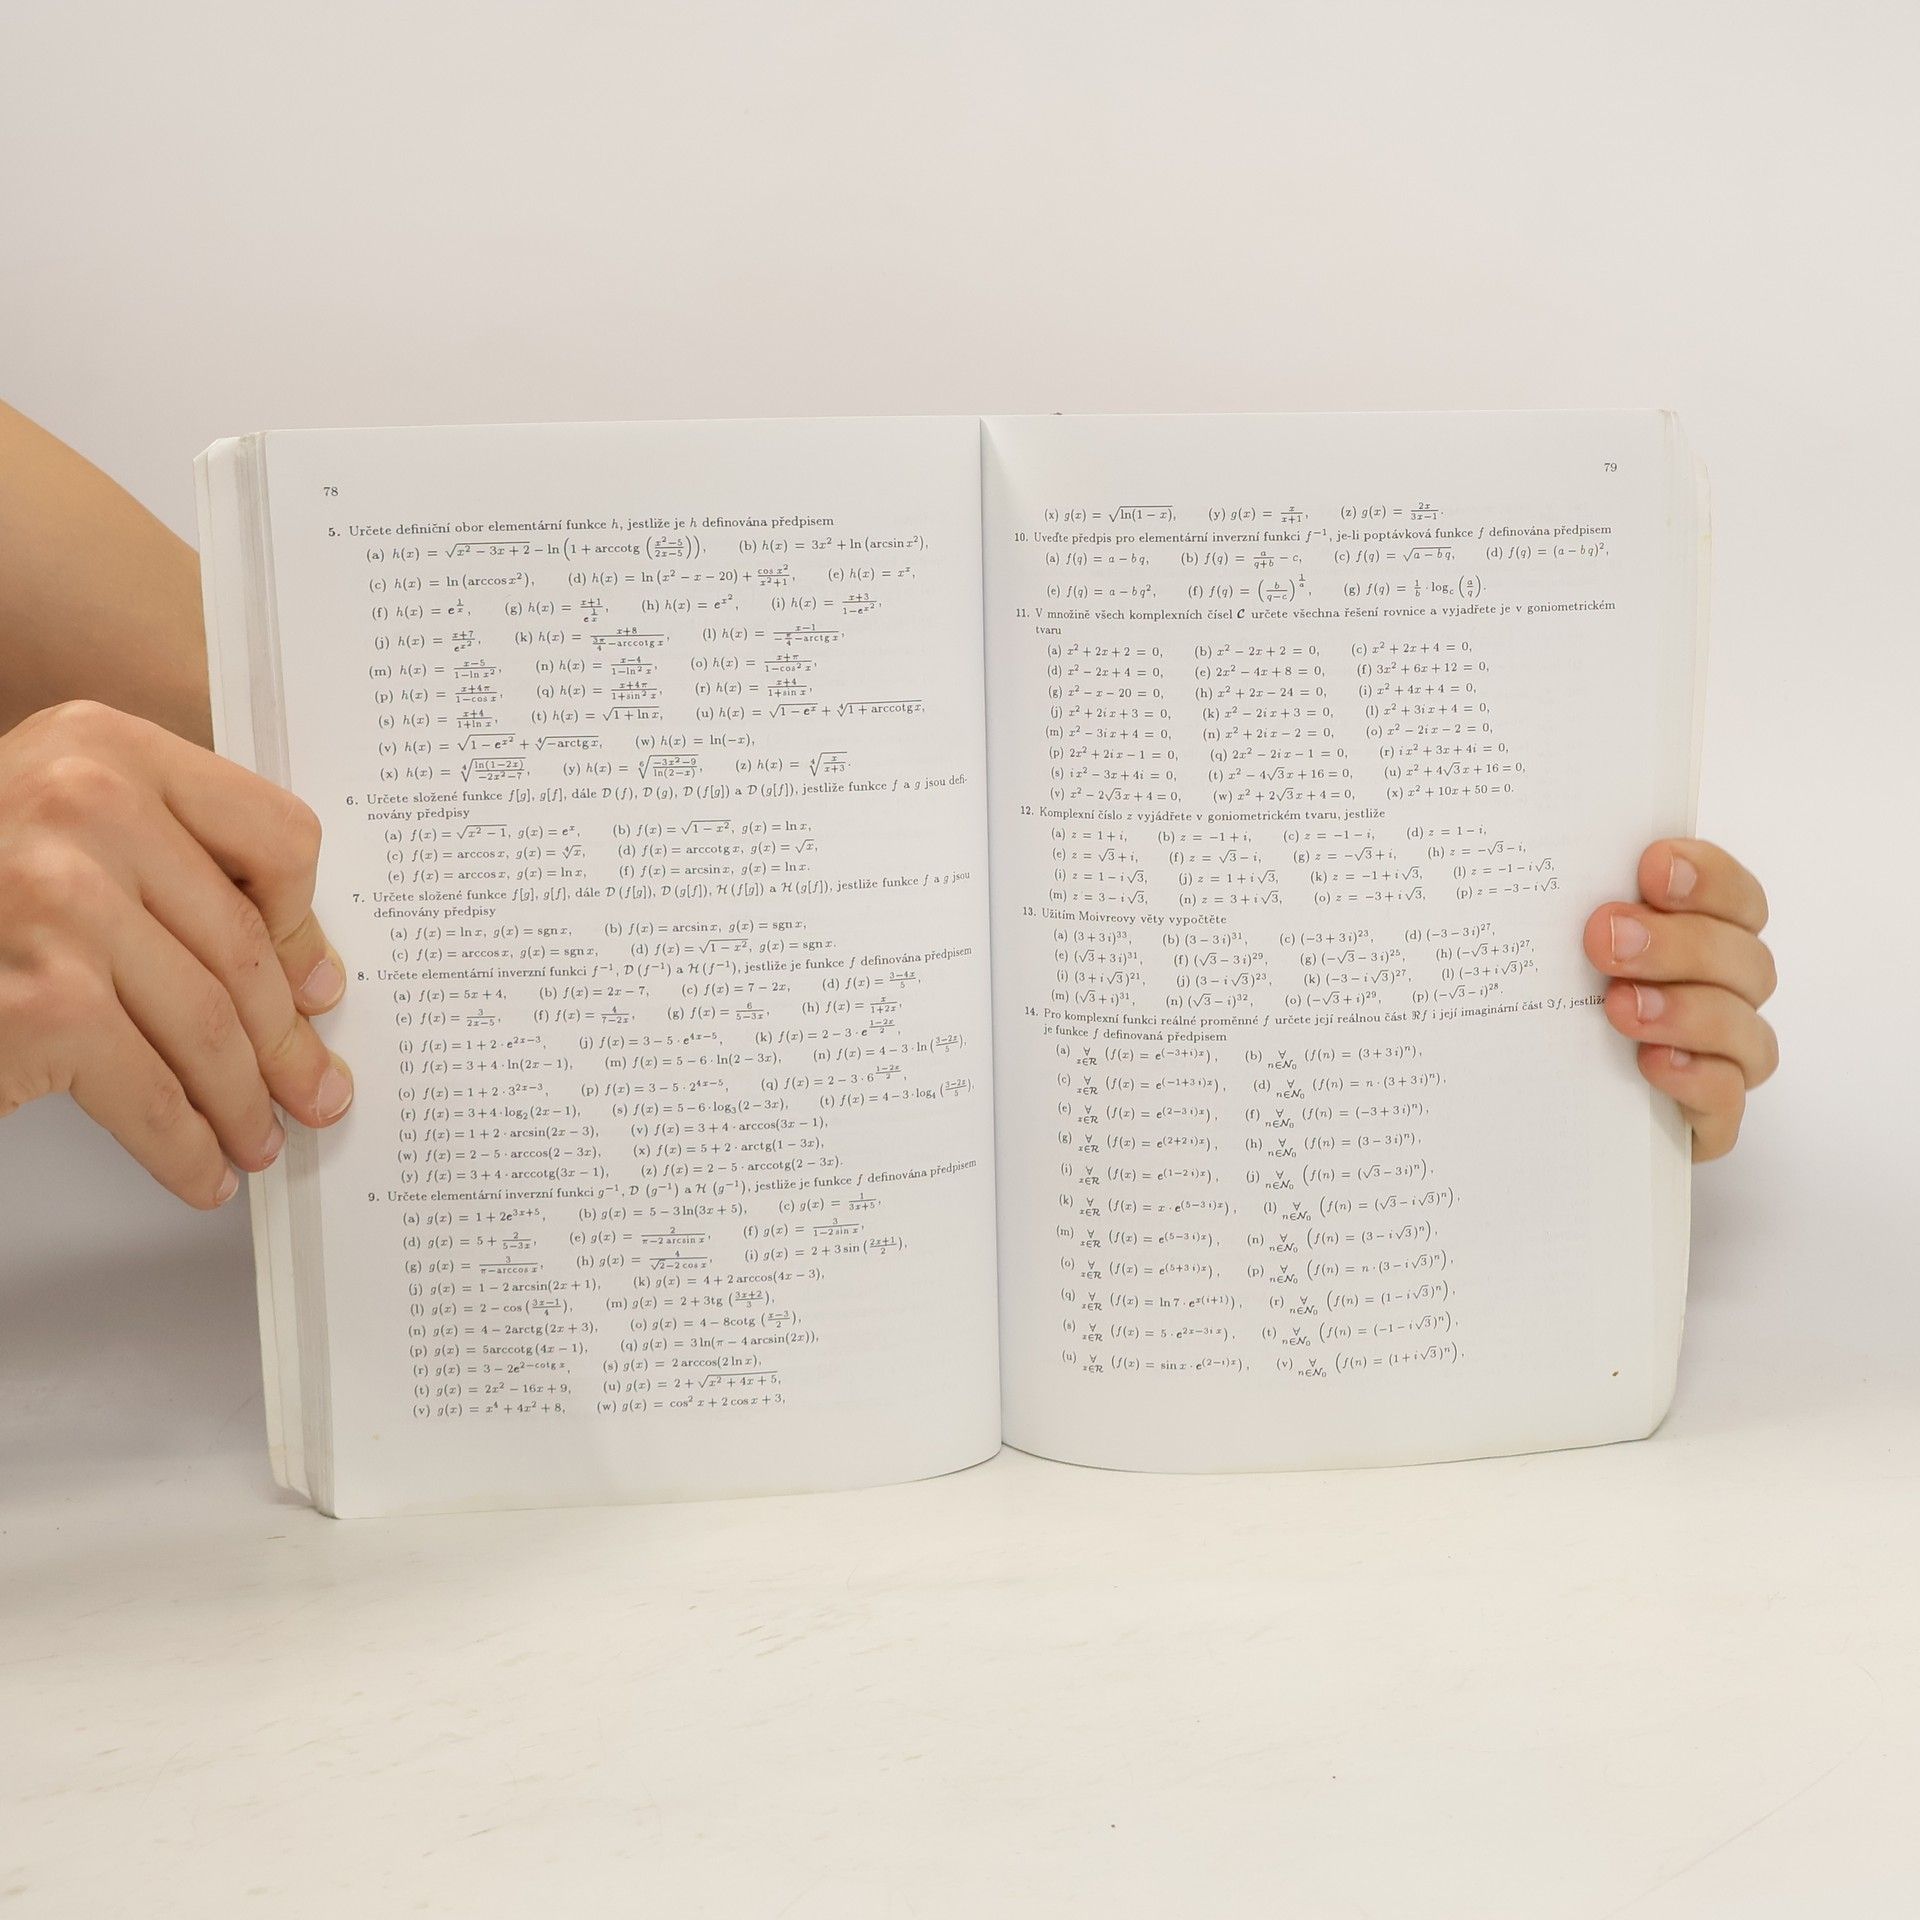 78
5. Určete definiční obor elementární funkce h, jestliže je h definována předpisem
(a) h(x) = √(x² − 3x + 2) − ln(1 + arccotg((x²−5)/(2x−5))), (b) h(x) = 3x² + ln(arcsin x²),
(c) h(x) = ln(arccos x²), (d) h(x) = ln(x² − x − 20) + (cos x²)/(x²+1), (e) h(x) = xˣ,
(f) h(x) = e^(1/x), (g) h(x) = (x+1)/e^(1/x), (h) h(x) = e^(x²), (i) h(x) = (x+3)/(1−e^(x²)),
(j) h(x) = (x+7)/e^(x²), (k) h(x) = (x+8)/(3π/4 − arccotg x), (l) h(x) = (x−1)/(−π/4 − arctg x),
(m) h(x) = (x−5)/(1−ln x²), (n) h(x) = (x−4)/(1−ln² x), (o) h(x) = (x+π)/(1−cos² x),
(p) h(x) = (x+4π)/(1−cos x), (q) h(x) = (x+4π)/(1+sin² x), (r) h(x) = (x+4)/(1+sin x),
(s) h(x) = (x+4)/(1+ln x), (t) h(x) = √(1 + ln x), (u) h(x) = √(1 − eˣ) + ∜(1 + arccotg x),
(v) h(x) = √(1 − e^(x²)) + ∜(−arctg x), (w) h(x) = ln(−x),
(x) h(x) = ∜(ln(1−2x)/(−2x²−7)), (y) h(x) = ⁶√((−3x²−9)/ln(2−x)), (z) h(x) = ∜(x/(x+3)).
6. Určete složené funkce f[g], g[f], dále D(f), D(g), D(f[g]) a D(g[f]), jestliže funkce f a g jsou defi-
novány předpisy
(a) f(x) = √(x² − 1), g(x) = eˣ, (b) f(x) = √(1 − x²), g(x) = ln x,
(c) f(x) = arccos x, g(x) = ∜x, (d) f(x) = arccotg x, g(x) = √x,
(e) f(x) = arccos x, g(x) = ln x, (f) f(x) = arcsin x, g(x) = ln x.
7. Určete složené funkce f[g], g[f], dále D(f[g]), D(g[f]), H(f[g]) a H(g[f]), jestliže funkce f a g jsou
definovány předpisy
(a) f(x) = ln x, g(x) = sgn x, (b) f(x) = arcsin x, g(x) = sgn x,
(c) f(x) = arccos x, g(x) = sgn x, (d) f(x) = √(1 − x²), g(x) = sgn x.
8. Určete elementární inverzní funkci f⁻¹, D(f⁻¹) a H(f⁻¹), jestliže je funkce f definována předpisem
(a) f(x) = 5x + 4, (b) f(x) = 2x − 7, (c) f(x) = 7 − 2x, (d) f(x) = (3−4x)/5,
(e) f(x) = 3/(2x−5), (f) f(x) = 4/(7−2x), (g) f(x) = 6/(5−3x), (h) f(x) = x/(1+2x),
(i) f(x) = 1 + 2 · e^(2x−3), (j) f(x) = 3 − 5 · e^(4x−5), (k) f(x) = 2 − 3 · e^((1−2x)/2),
(l) f(x) = 3 + 4 · ln(2x − 1), (m) f(x) = 5 − 6 · ln(2 − 3x), (n) f(x) = 4 − 3 · ln((3−2x)/5),
(o) f(x) = 1 + 2 · 3^(2x−3), (p) f(x) = 3 − 5 · 2^(4x−5), (q) f(x) = 2 − 3 · 6^((1−2x)/2),
(r) f(x) = 3 + 4 · log₂(2x − 1), (s) f(x) = 5 − 6 · log₃(2 − 3x), (t) f(x) = 4 − 3 · log₄((3−2x)/5),
(u) f(x) = 1 + 2 · arcsin(2x − 3), (v) f(x) = 3 + 4 · arccos(3x − 1),
(w) f(x) = 2 − 5 · arccos(2 − 3x), (x) f(x) = 5 + 2 · arctg(1 − 3x),
(y) f(x) = 3 + 4 · arccotg(3x − 1), (z) f(x) = 2 − 5 · arccotg(2 − 3x).
9. Určete elementární inverzní funkci g⁻¹, D(g⁻¹) a H(g⁻¹), jestliže je funkce f definována předpisem
(a) g(x) = 1 + 2e^(3x+5), (b) g(x) = 5 − 3 ln(3x + 5), (c) g(x) = 1/(3x+5),
(d) g(x) = 5 + 2/(5−3x), (e) g(x) = 2/(π−2 arcsin x), (f) g(x) = 3/(1−2 sin x),
(g) g(x) = 3/(π−arccos x), (h) g(x) = 4/(√2−2 cos x), (i) g(x) = 2 + 3 sin((2x+1)/2),
(j) g(x) = 1 − 2 arcsin(2x + 1), (k) g(x) = 4 + 2 arccos(4x − 3),
(l) g(x) = 2 − cos((3x−1)/4), (m) g(x) = 2 + 3tg((3x+2)/3),
(n) g(x) = 4 − 2arctg(2x + 3), (o) g(x) = 4 − 8cotg((x−3)/2),
(p) g(x) = 5arccotg(4x − 1), (q) g(x) = 3 ln(π − 4 arcsin(2x)),
(r) g(x) = 3 − 2e^(2−cotg x), (s) g(x) = 2 arccos(2 ln x),
(t) g(x) = 2x² − 16x + 9, (u) g(x) = 2 + √(x² + 4x + 5),
(v) g(x) = x⁴ + 4x² + 8, (w) g(x) = cos² x + 2 cos x + 3,
79
(x) g(x) = √(ln(1 − x)), (y) g(x) = x/(x+1), (z) g(x) = 2x/(3x−1).
10. Uveďte předpis pro elementární inverzní funkci f⁻¹, je-li poptávková funkce f definována předpisem
(a) f(q) = a − b q, (b) f(q) = a/(q+b) − c, (c) f(q) = √(a − b q), (d) f(q) = (a − b q)²,
(e) f(q) = a − b q², (f) f(q) = (b/(q−c))^(1/a), (g) f(q) = 1/b · log_c(a/q).
11. V množině všech komplexních čísel C určete všechna řešení rovnice a vyjadřete je v goniometrickém
tvaru
(a) x² + 2x + 2 = 0, (b) x² − 2x + 2 = 0, (c) x² + 2x + 4 = 0,
(d) x² − 2x + 4 = 0, (e) 2x² − 4x + 8 = 0, (f) 3x² + 6x + 12 = 0,
(g) x² − x − 20 = 0, (h) x² + 2x − 24 = 0, (i) x² + 4x + 4 = 0,
(j) x² + 2i x + 3 = 0, (k) x² − 2i x + 3 = 0, (l) x² + 3i x + 4 = 0,
(m) x² − 3i x + 4 = 0, (n) x² + 2i x − 2 = 0, (o) x² − 2i x − 2 = 0,
(p) 2x² + 2i x − 1 = 0, (q) 2x² − 2i x − 1 = 0, (r) i x² + 3x + 4i = 0,
(s) i x² − 3x + 4i = 0, (t) x² − 4√3 x + 16 = 0, (u) x² + 4√3 x + 16 = 0,
(v) x² − 2√3 x + 4 = 0, (w) x² + 2√3 x + 4 = 0, (x) x² + 10x + 50 = 0.
12. Komplexní číslo z vyjádřete v goniometrickém tvaru, jestliže
(a) z = 1 + i, (b) z = −1 + i, (c) z = −1 − i, (d) z = 1 − i,
(e) z = √3 + i, (f) z = √3 − i, (g) z = −√3 + i, (h) z = −√3 − i,
(i) z = 1 − i√3, (j) z = 1 + i√3, (k) z = −1 + i√3, (l) z = −1 − i√3,
(m) z = 3 − i√3, (n) z = 3 + i√3, (o) z = −3 + i√3, (p) z = −3 − i√3.
13. Užitím Moivreovy věty vypočtěte
(a) (3 + 3 i)³³, (b) (3 − 3 i)³¹, (c) (−3 + 3 i)²³, (d) (−3 − 3 i)²⁷,
(e) (√3 + 3 i)³¹, (f) (√3 − 3 i)²⁹, (g) (−√3 − 3 i)²⁵, (h) (−√3 + 3 i)²⁷,
(i) (3 + i√3)²¹, (j) (3 − i√3)²³, (k) (−3 − i√3)²⁷, (l) (−3 + i√3)²⁵,
(m) (√3 + i)³¹, (n) (√3 − i)³², (o) (−√3 + i)²⁹, (p) (−√3 − i)²⁸.
14. Pro komplexní funkci reálné proměnné f určete její reálnou část ℜf i její imaginární část ℑf, jestliže
je funkce f definovaná předpisem
(a) ∀ x∈R (f(x) = e^((−3+i)x)), (b) ∀ n∈N₀ (f(n) = (3 + 3 i)ⁿ),
(c) ∀ x∈R (f(x) = e^((−1+3 i)x)), (d) ∀ n∈N₀ (f(n) = n · (3 + 3 i)ⁿ),
(e) ∀ x∈R (f(x) = e^((2−3 i)x)), (f) ∀ n∈N₀ (f(n) = (−3 + 3 i)ⁿ),
(g) ∀ x∈R (f(x) = e^((2+2 i)x)), (h) ∀ n∈N₀ (f(n) = (3 − 3 i)ⁿ),
(i) ∀ x∈R (f(x) = e^((1−2 i)x)), (j) ∀ n∈N₀ (f(n) = (√3 − 3 i)ⁿ),
(k) ∀ x∈R (f(x) = x · e^((5−3 i)x)), (l) ∀ n∈N₀ (f(n) = (√3 − i√3)ⁿ),
(m) ∀ x∈R (f(x) = e^((5−3 i)x)), (n) ∀ n∈N₀ (f(n) = (3 − i√3)ⁿ),
(o) ∀ x∈R (f(x) = e^((5+3 i)x)), (p) ∀ n∈N₀ (f(n) = n · (3 − i√3)ⁿ),
(q) ∀ x∈R (f(x) = ln 7 · e^(x(i+1))), (r) ∀ n∈N₀ (f(n) = (1 − i√3)ⁿ),
(s) ∀ x∈R (f(x) = 5 · e^(2x−3i x)), (t) ∀ n∈N₀ (f(n) = (−1 − i√3)ⁿ),
(u) ∀ x∈R (f(x) = sin x · e^((2−i)x)), (v) ∀ n∈N₀ (f(n) = (1 + i√3)ⁿ),